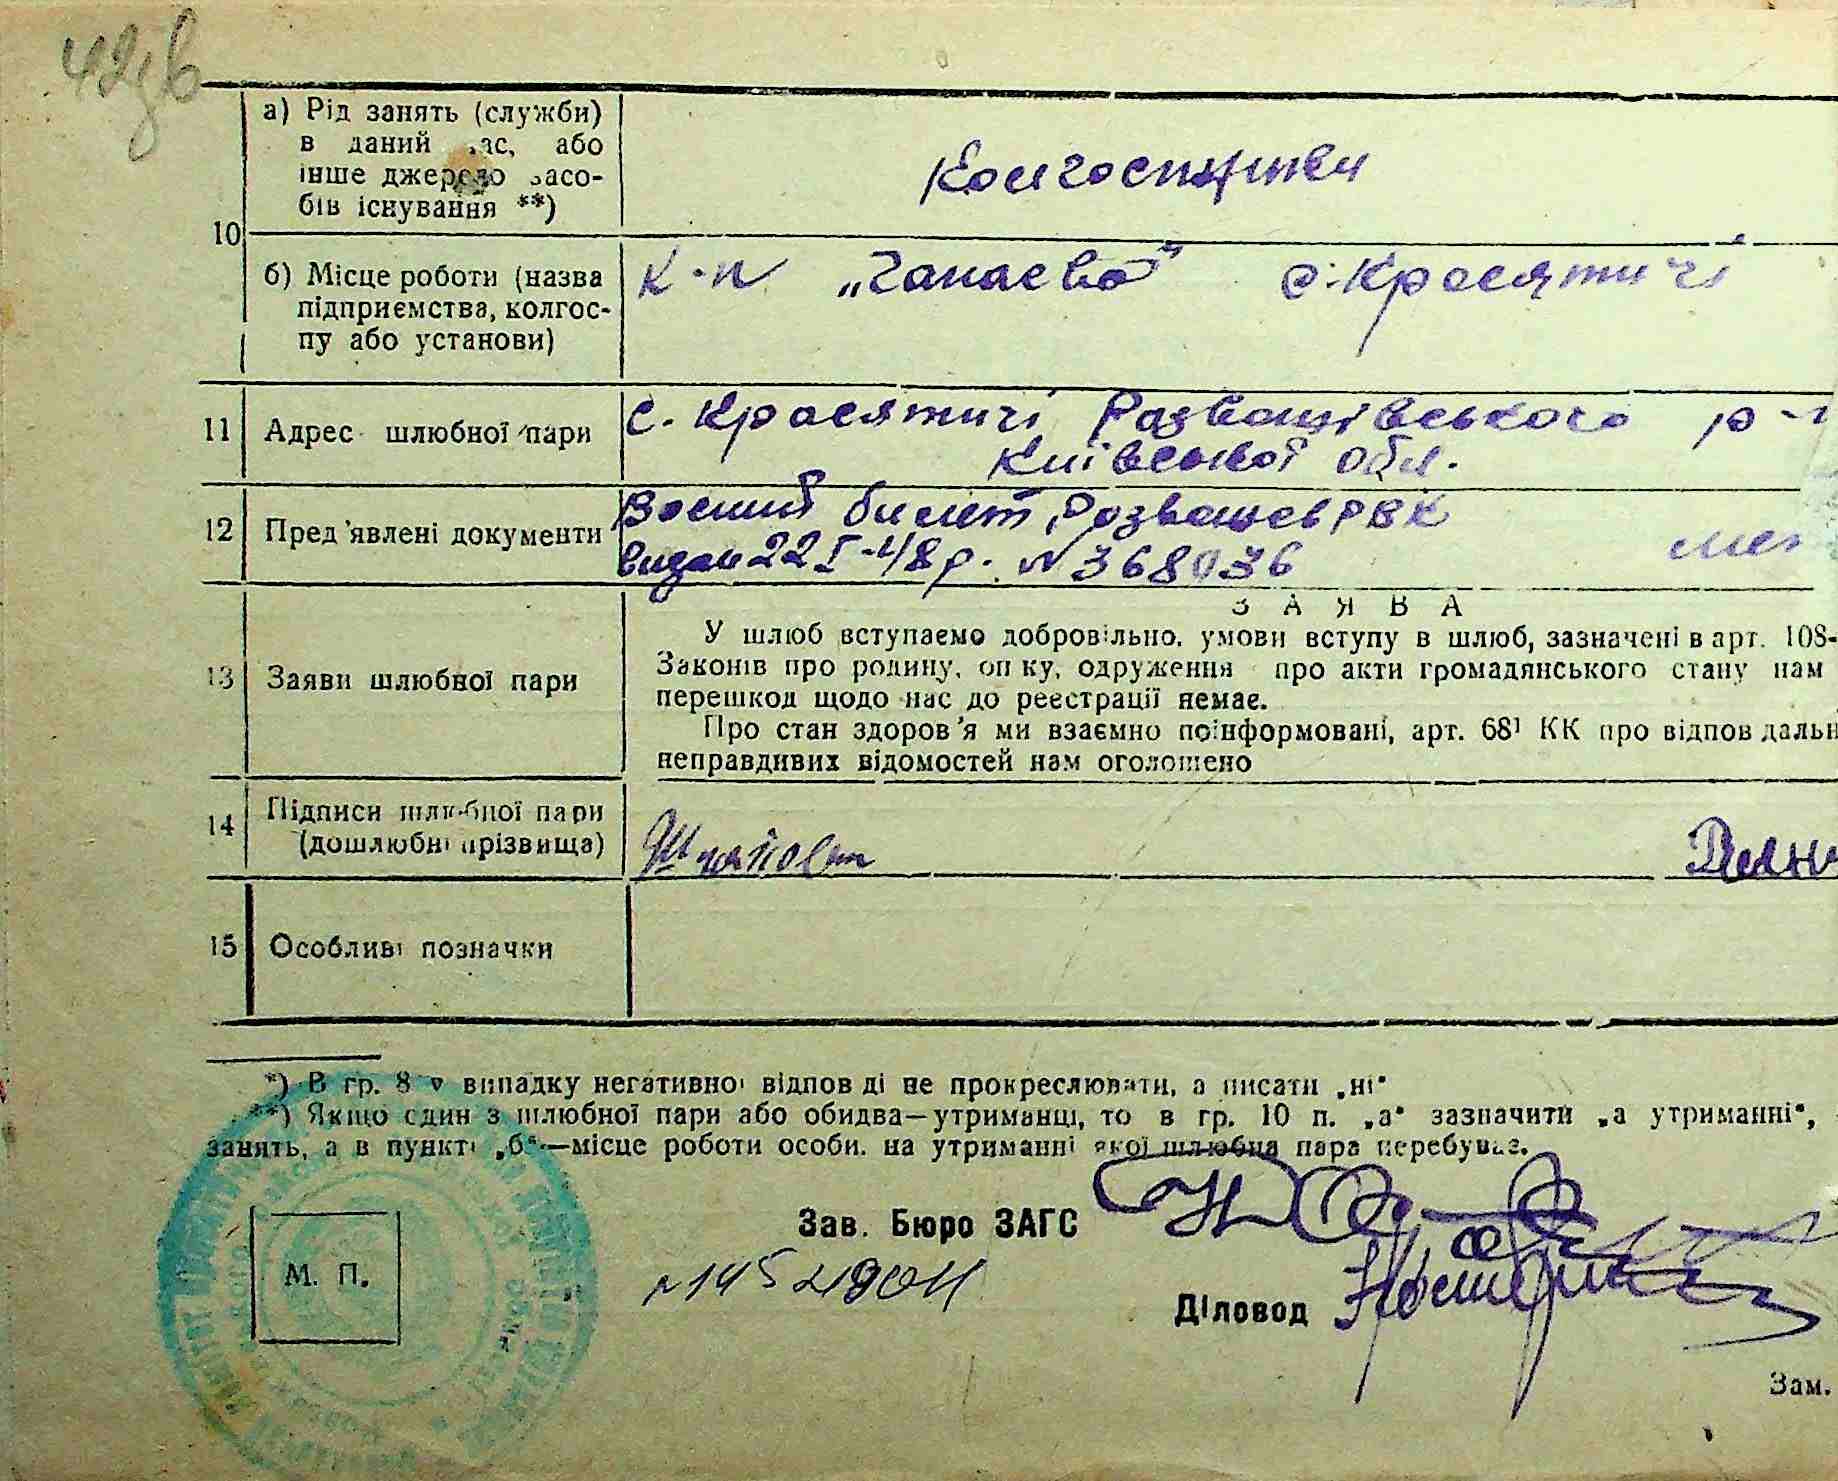 а) Рід занять (служби)
в даний час, або
інше джерело засо-
бів існування **)
10
б) Місце роботи (назва
підприємства, колгос-
пу або установи)
к-п „Чапаєва" с. Красятичі
11 Адрес шлюбної пари
с. Красятичі Розважівського р-
Київської обл.
12 Пред'явлені документи
Воєний билет Розважев РВК
видан 22 I-48 р. N 368036
13 Заяви шлюбної пари
ЗАЯВА
У шлюб вступаємо добровільно. умови вступу в шлюб, зазначені в арт. 108-
Законів про родину, опіку, одруження про акти громадянського стану нам
перешкод щодо нас до реєстрації немає.
Про стан здоров'я ми взаємно поінформовані, арт. 68¹ КК про відповідальн
неправдивих відомостей нам оголошено
14 Підписи шлюбної пари
(дошлюбні прізвища)
15 Особливі позначки
*) В гр. 8 у випадку негативної відповіді не прокреслювати, а писати „ні"
**) Якщо один з шлюбної пари або обидва—утриманці, то в гр. 10 п. „а" зазначити „а утриманні",
занять, а в пункті „б"—місце роботи особи. на утриманні якої шлюбна пара перебуває.
Зав. Бюро ЗАГС
М. П.
Діловод
Зам.